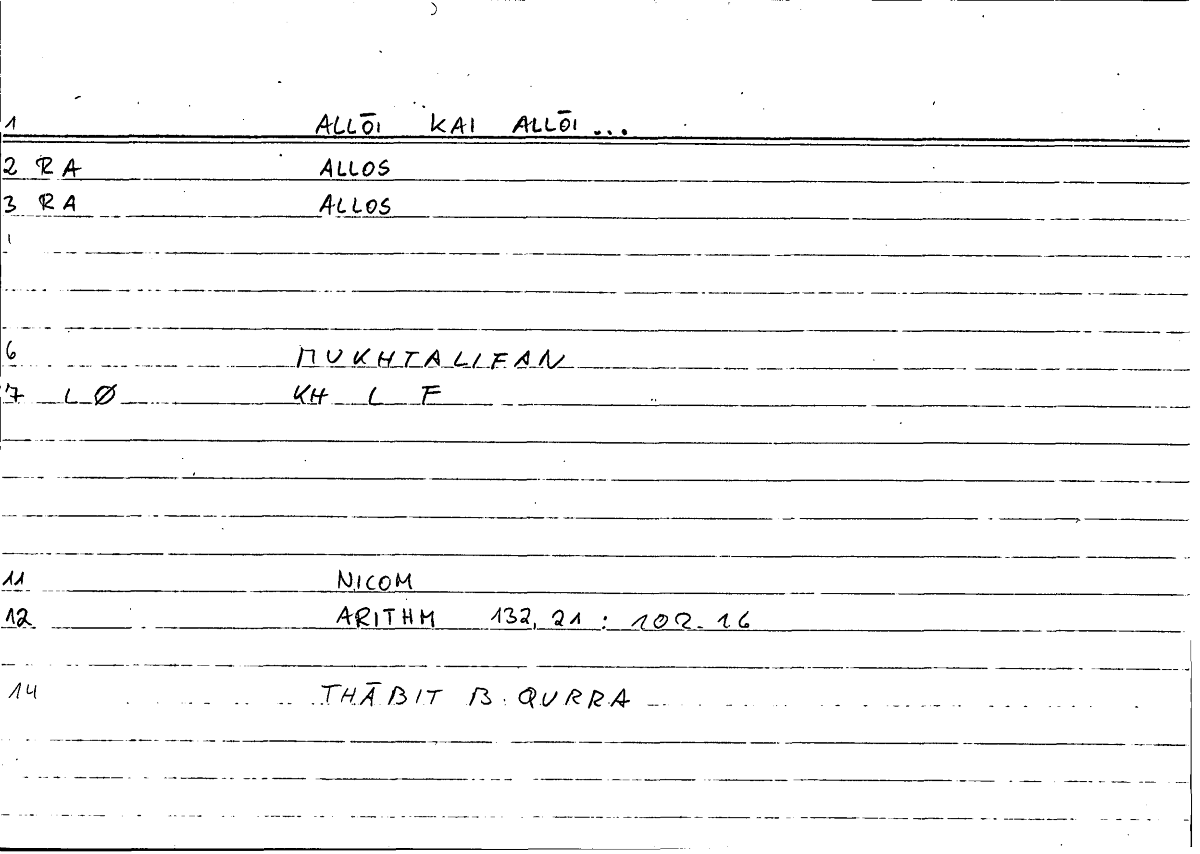 1 ALLŌI KAI ALLŌI ...
2 RA ALLOS
3 RA ALLOS
6 MUKHTALIFAN
7 LØ KH L F
11 NICOM
12 ARITHM 132, 21 : 102.16
14 THĀBIT B. QURRA